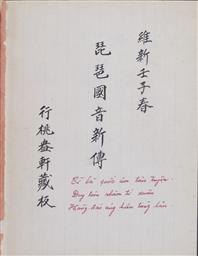 維新壬子春
琵琶國音新傳
行桃盎軒藏板
Tì bà quốc âm tân truyện.
Duy tân nhâm tí xuân
Hàng đào áng hiên tàng bản